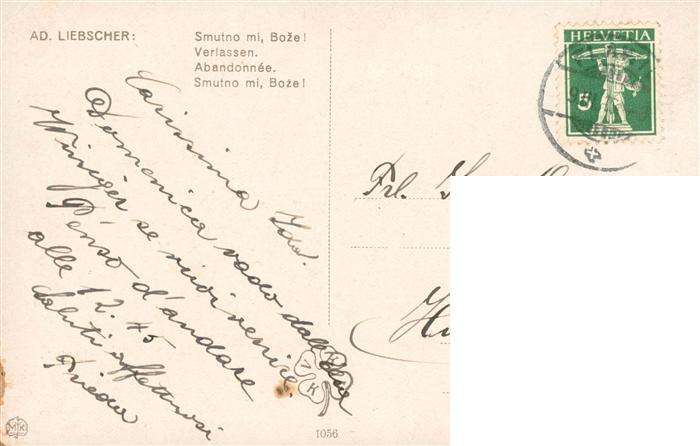 AD. LIEBSCHER:
Smutno mi, Bože!
Verlassen.
Abandonnée.
Smutno mi, Bože!
HELVETIA
5
Carissima Ida.
Domenica vado dalla
Winiger se vuoi venire.
Penso d'andare
alle 12.45
Saluti affettuosi
Frieda
Frl.
K
V K
M K
1056